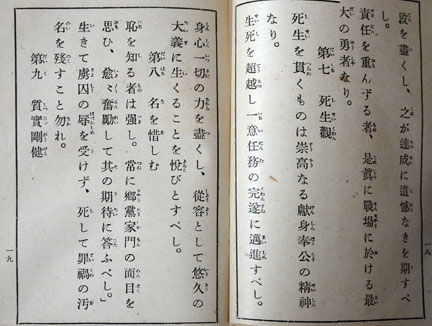 段を盡くし、之が達成に遺憾なきを期すべし。
責任を重んずる者、是眞に戰場に於ける最
大の勇者なり。
第七 死生觀
死生を貫くものは崇高なる獻身奉公の精神
なり。
生死を超越し一意任務の完遂に邁進すべし。
一八
身心一切の力を盡くし、從容として悠久の
大義に生くることを悅びとすべし。
第八 名を惜しむ
恥を知る者は强し。常に鄕黨家門の面目を
思ひ、愈〻奮勵して其の期待に答ふべし。
生きて虜囚の辱を受けず、死して罪禍の汚
名を殘すこと勿れ。
第九 質實剛健
一九